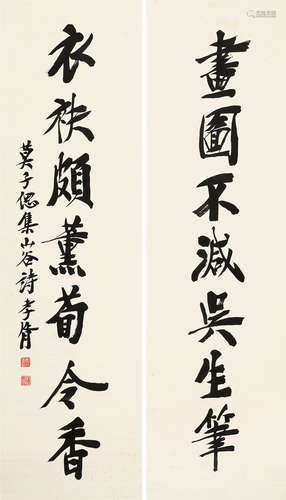 畫圖不減吳生筆
衣袂頗薰荀令香
莫子偲集山谷詩 孝胥